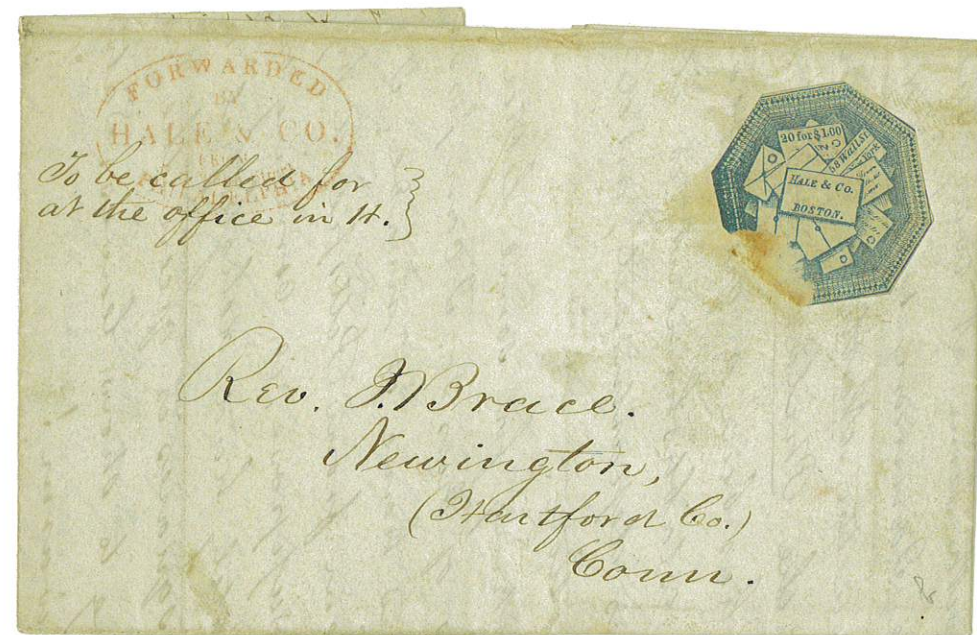 FORWARDED
BY
HALE & CO.
To be called for
at the office in H.
20 for $1.00
58 Wall St
York
HALE & Co.
BOSTON.
Rev. J. Brace.
Newington,
(Hartford Co.)
Conn.